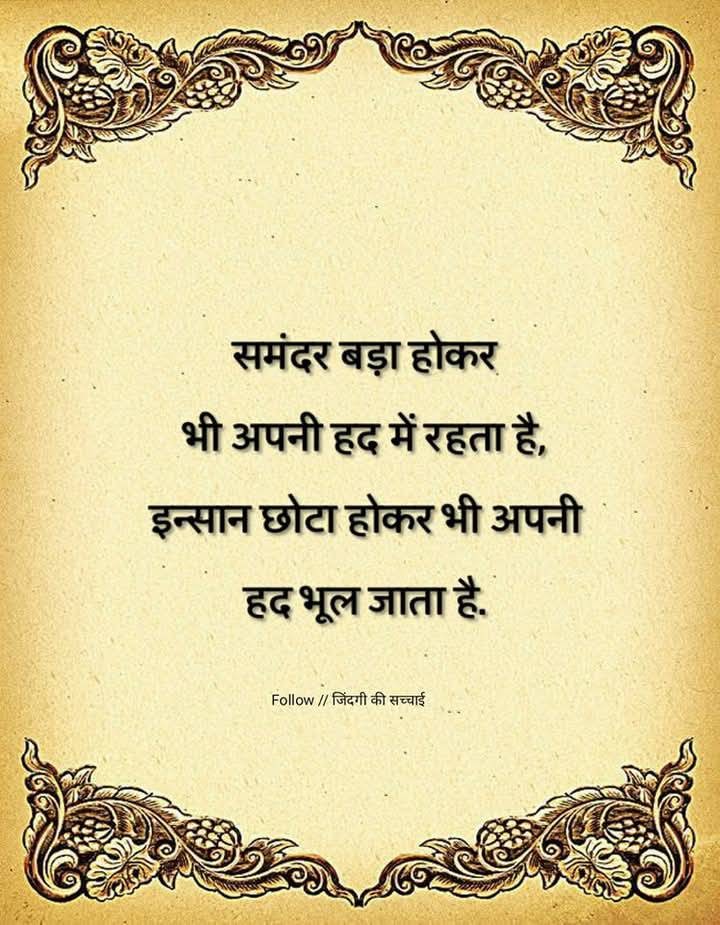 समंदर बड़ा होकर
भी अपनी हद में रहता है,
इन्सान छोटा होकर भी अपनी
हद भूल जाता है.
Follow // जिंदगी की सच्चाई